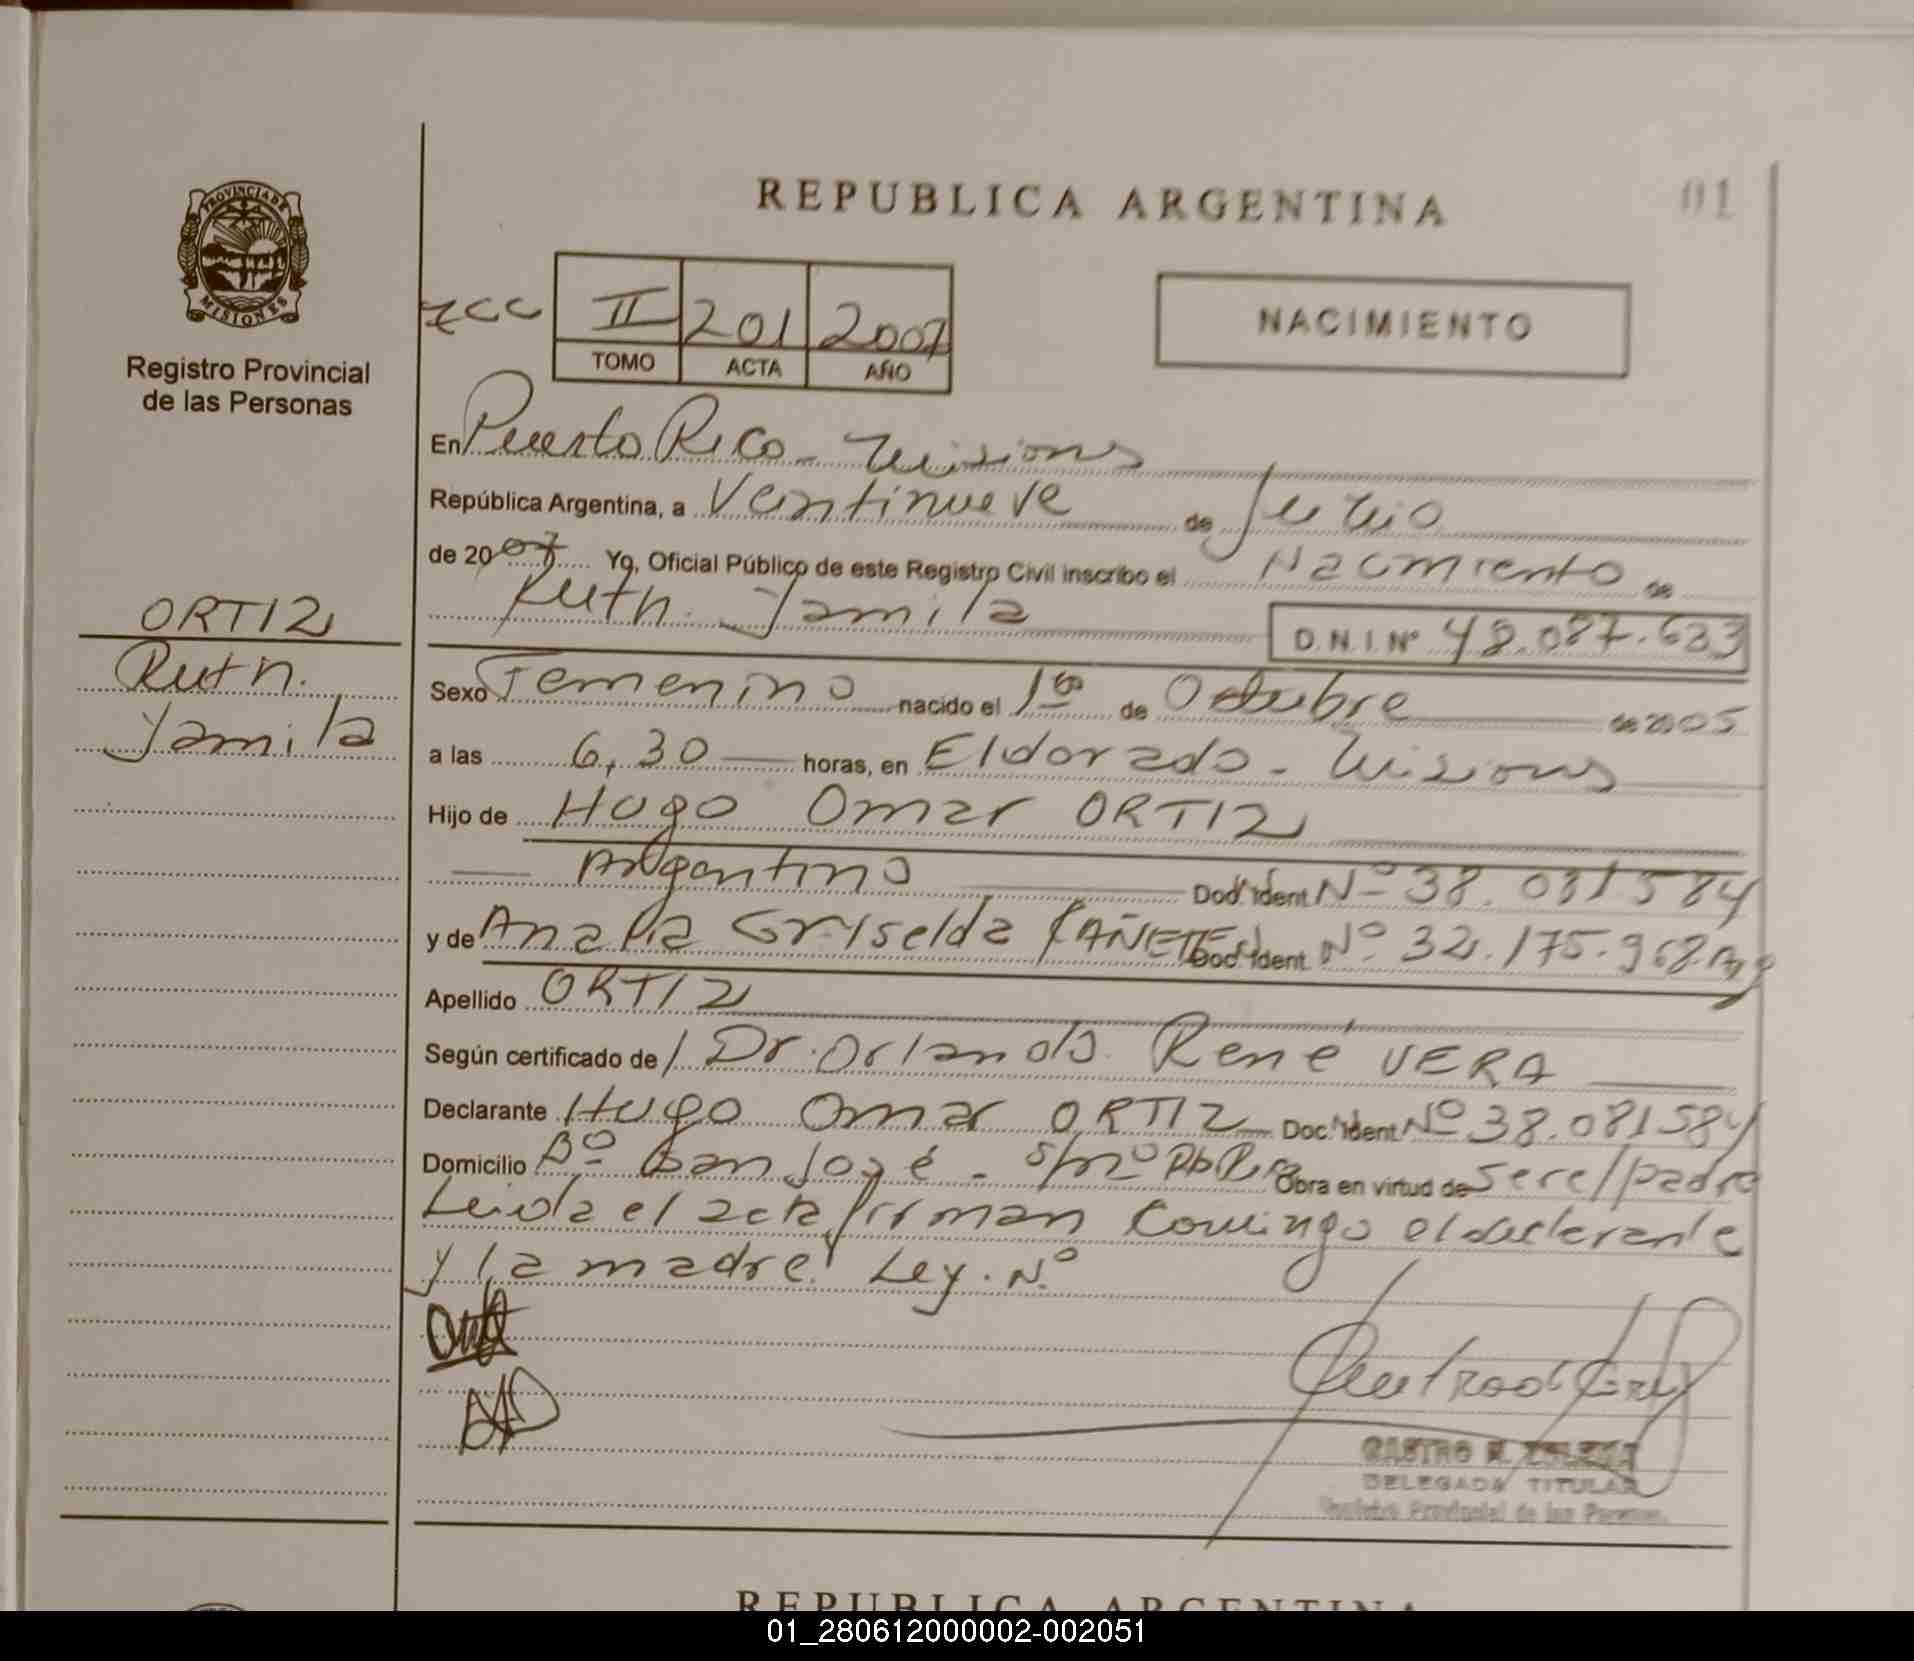 REPUBLICA ARGENTINA
01
PROVINCIA DE
MISIONES
Registro Provincial
de las Personas
II 201 2007
TOMO ACTA AÑO
NACIMIENTO
En Puerto Rico - Misiones
República Argentina, a Veintinueve de Junio
de 2007 Yo, Oficial Público de este Registro Civil inscribo el Nacimiento de
Ruth Yamila D.N.I. Nº 48.087.633
ORTIZ
Ruth.
Yamila
Sexo Femenino nacido el 1º de Octubre de 2005
a las 6,30 horas, en Eldorado - Misiones
Hijo de Hugo Omar ORTIZ
Argentino Doc. Ident. Nº 38.081584
y de Analia Griselda CAÑETE Doc. Ident. Nº 32.175.968.
Apellido ORTIZ
Según certificado de Dr. Orlando René VERA
Declarante Hugo Omar ORTIZ Doc. Ident. Nº 38.081584
Domicilio Bº San José - S/nº Obra en virtud de ser el padre
Leida el acta firman conmigo el declarante
y la madre. Ley. Nº
CASTRO
DELEGADA TITULAR
Registro Provincial de las Personas
REPUBLICA ARGENTINA
01_280612000002-002051